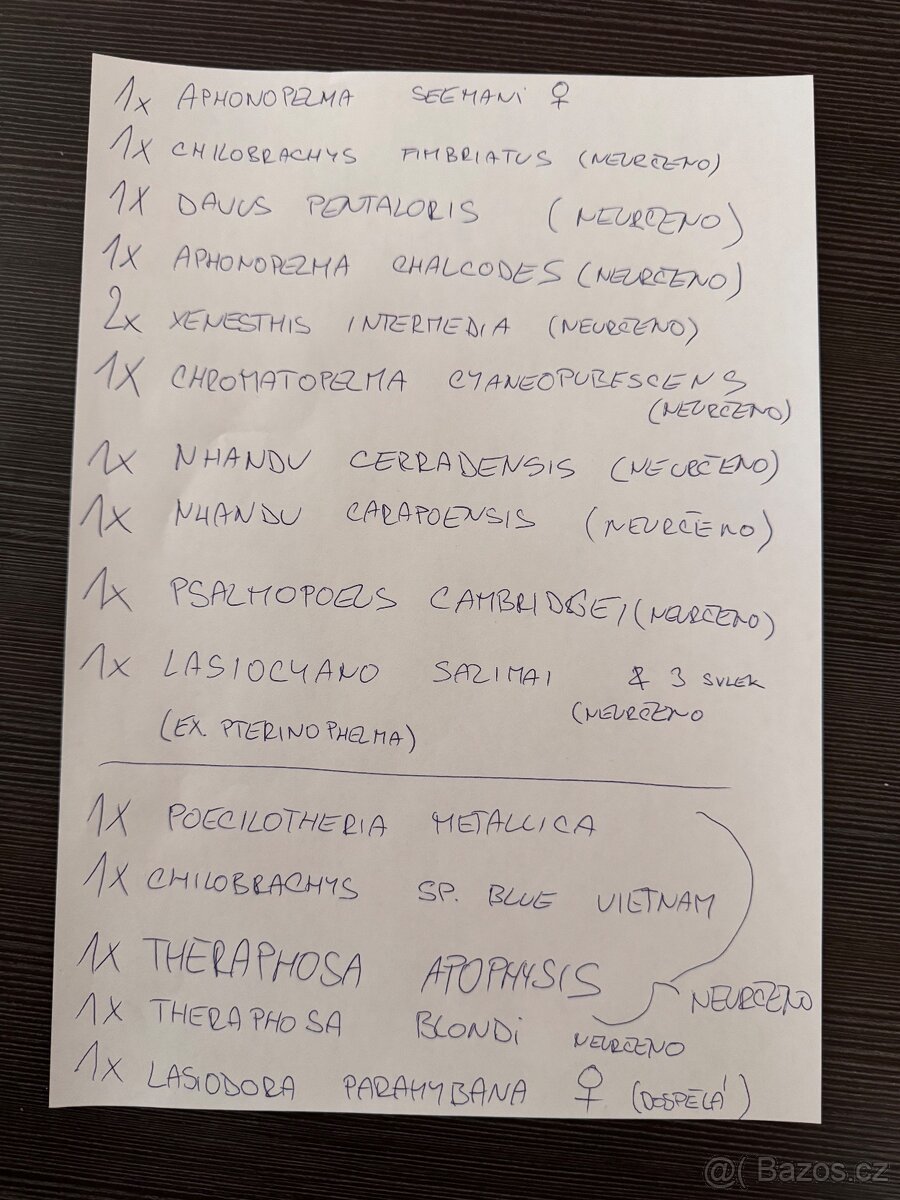 1x APHONOPELMA SEEMANI ♀
1X CHILOBRACHYS FIMBRIATUS (NEURČENO)
1X DAVUS PENTALORIS (NEURČENO)
1X APHONOPELMA CHALCODES (NEURČENO)
2x XENESTHIS INTERMEDIA (NEURČENO)
1X CHROMATOPELMA CYANEOPUBESCENS
(NEURČENO)
1x NHANDU CERRADENSIS (NEURČENO)
1x NHANDU CARAPOENSIS (NEURČENO)
1x PSALMOPOEUS CAMBRIDGEI (NEURČENO)
1x LASIOCYANO SAZIMAI 3 SVLEK
(NEURČENO
(EX. PTERINOPHELMA)
1X POECILOTHERIA METALLICA
1X CHILOBRACHYS SP. BLUE VIETNAM
1X THERAPHOSA APOPHYSIS
NEURČENO
1X THERAPHOSA BLONDI NEURČENO
1X LASIODORA PARAHYBANA ♀ (DOSPELÁ)
@( Bazos.cz